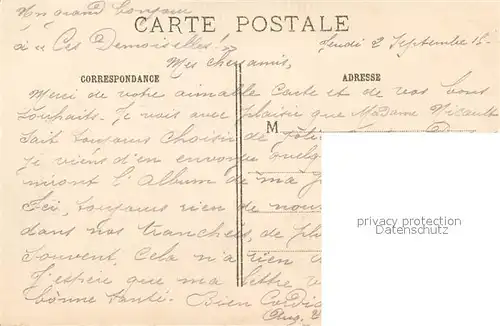 Un grand bonjour
CARTE POSTALE
à « Ces Demoiselles ! »
Jeudi 2 Septembre 15
Mes chers amis,
CORRESPONDANCE
ADRESSE
Merci de votre aimable Carte et de vos bons
souhaits. Je vois avec plaisir que Madame
sait toujours choisir de
M
Je viens d'en envoyer quelq
niront l'Album de ma
Ici, toujours rien de nou
dans nos tranchées, de pl
souvent, Cela n'a rien
J'espère que ma lettre
bonne santé. Bien Cordia
privacy protection
www.ansichtskartenversand.com